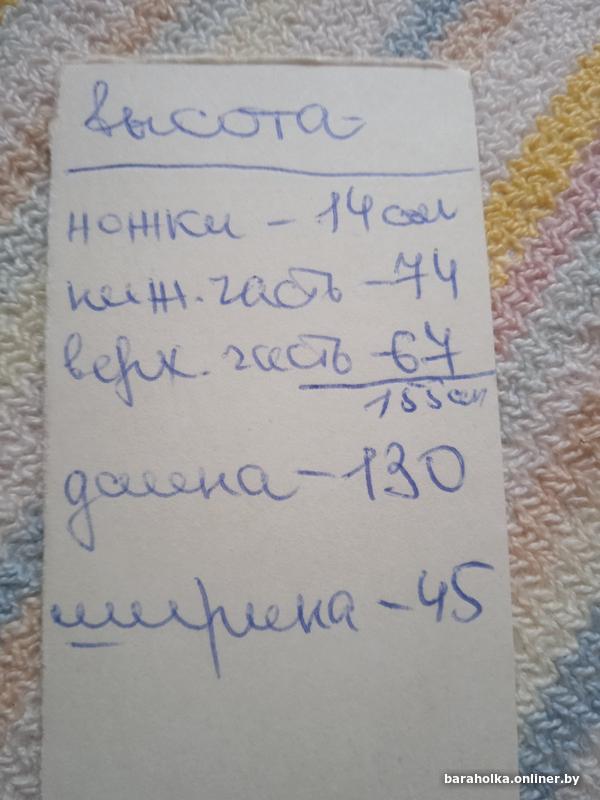 высота-
ножки - 14 см
ниж. часть - 74
верх. часть - 67
155 см
длина - 130
ширина - 45
baraholka.onliner.by